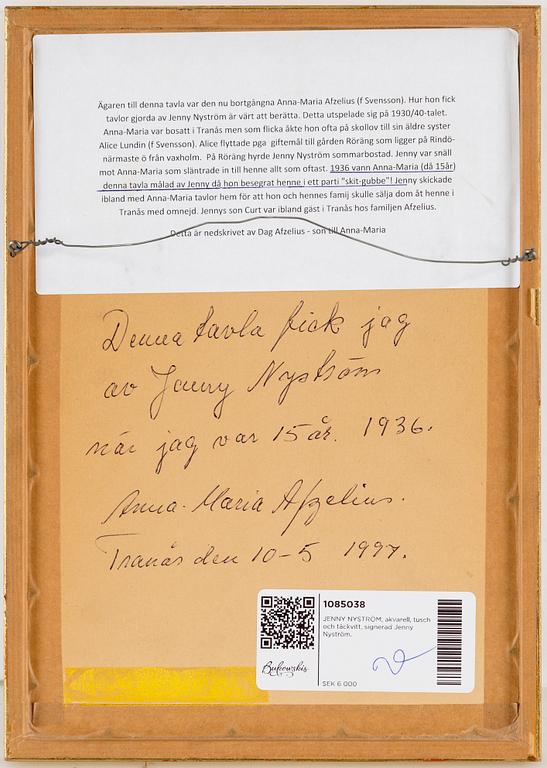 Ägaren till denna tavla var den nu bortgångna Anna-Maria Afzelius (f Svensson). Hur hon fick
tavlor gjorda av Jenny Nyström är värt att berätta. Detta utspelade sig på 1930/40-talet.
Anna-Maria var bosatt i Tranås men som flicka åkte hon ofta på skollov till sin äldre syster
Alice Lundin (f Svensson). Alice flyttade pga giftemål till gården Röräng som ligger på Rindö-
närmaste ö från vaxholm. På Röräng hyrde Jenny Nyström sommarbostad. Jenny var snäll
mot Anna-Maria som släntrade in till henne allt som oftast. 1936 vann Anna-Maria (då 15år)
denna tavla målad av Jenny då hon besegrat henne i ett parti "skit-gubbe"! Jenny skickade
ibland med Anna-Maria tavlor hem för att hon och hennes familj skulle sälja dom åt henne i
Tranås med omnejd. Jennys son Curt var ibland gäst i Tranås hos familjen Afzelius.
Detta är nedskrivet av Dag Afzelius - son till Anna-Maria
Denna tavla fick jag
av Jenny Nyström
när jag var 15 år. 1936.
Anna-Maria Afzelius.
Tranås den 10-5 1997.
1085038
JENNY NYSTRÖM, akvarell, tusch
och täckvitt, signerad Jenny
Nyström.
Bukowskis
SEK 6 000